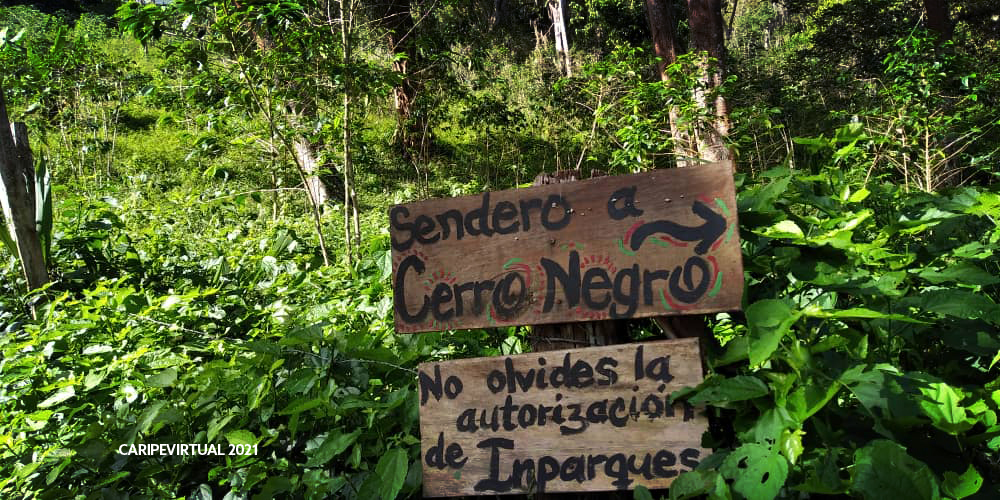 Sendero a
Cerro Negro
No olvides la
autorización
de Inparques
CARIPEVIRTUAL 2021